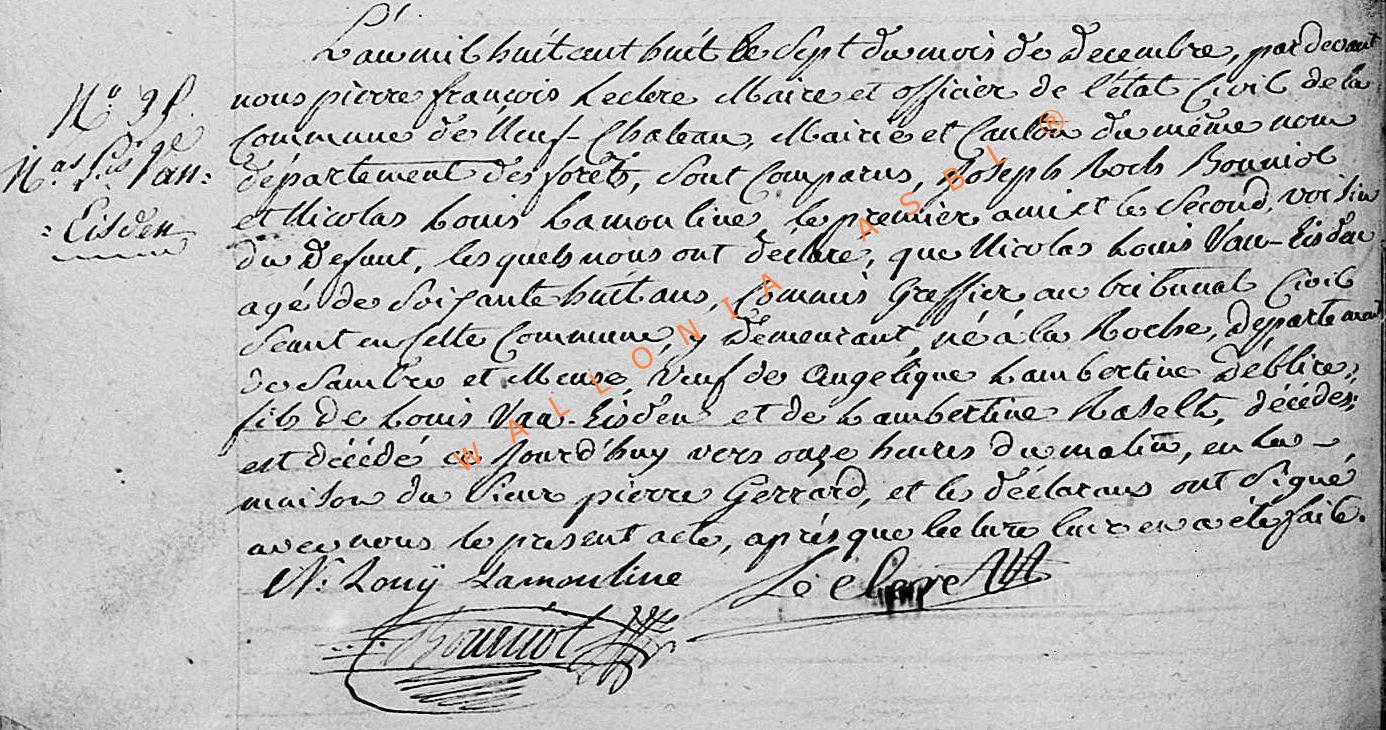 L'an mil huit cent huit le Sept du mois de Decembre, par devant
nous pierre françois Leclere Maire et officier de l'état Civil de la
Commune de Neuf-Chateau, Mairie et Canton du même nom
département des forêts, sont Comparus, Joseph Roch Bouniol
et Nicolas Louis Lamouline, le premier ami et le Second, voisin
du Defunt, lesquels nous ont declaré, que Nicolas Louis Van-Eisden
agé de Soixante huit ans, Commis Greffier au tribunal Civil
Séant en Cette Commune, y demeurant, né à la Roche, département
de Sambre et Meuse, Veuf de Angelique Lambertine
fils de Louis Van-Eisden et de Lambertine Raselt, décédés;
est décédé ce Jourd'huy vers onze heures du matin, en la
maison du Sieur pierre Gerrard, et les déclarans ont Signé
avec nous le présent acte, après que lecture leur en a été faite.
N. Louij Lamouline
Leclere
Bouniol
N.º
N.as L.is Van=
=Eisden
WALLONIA ASBL ®